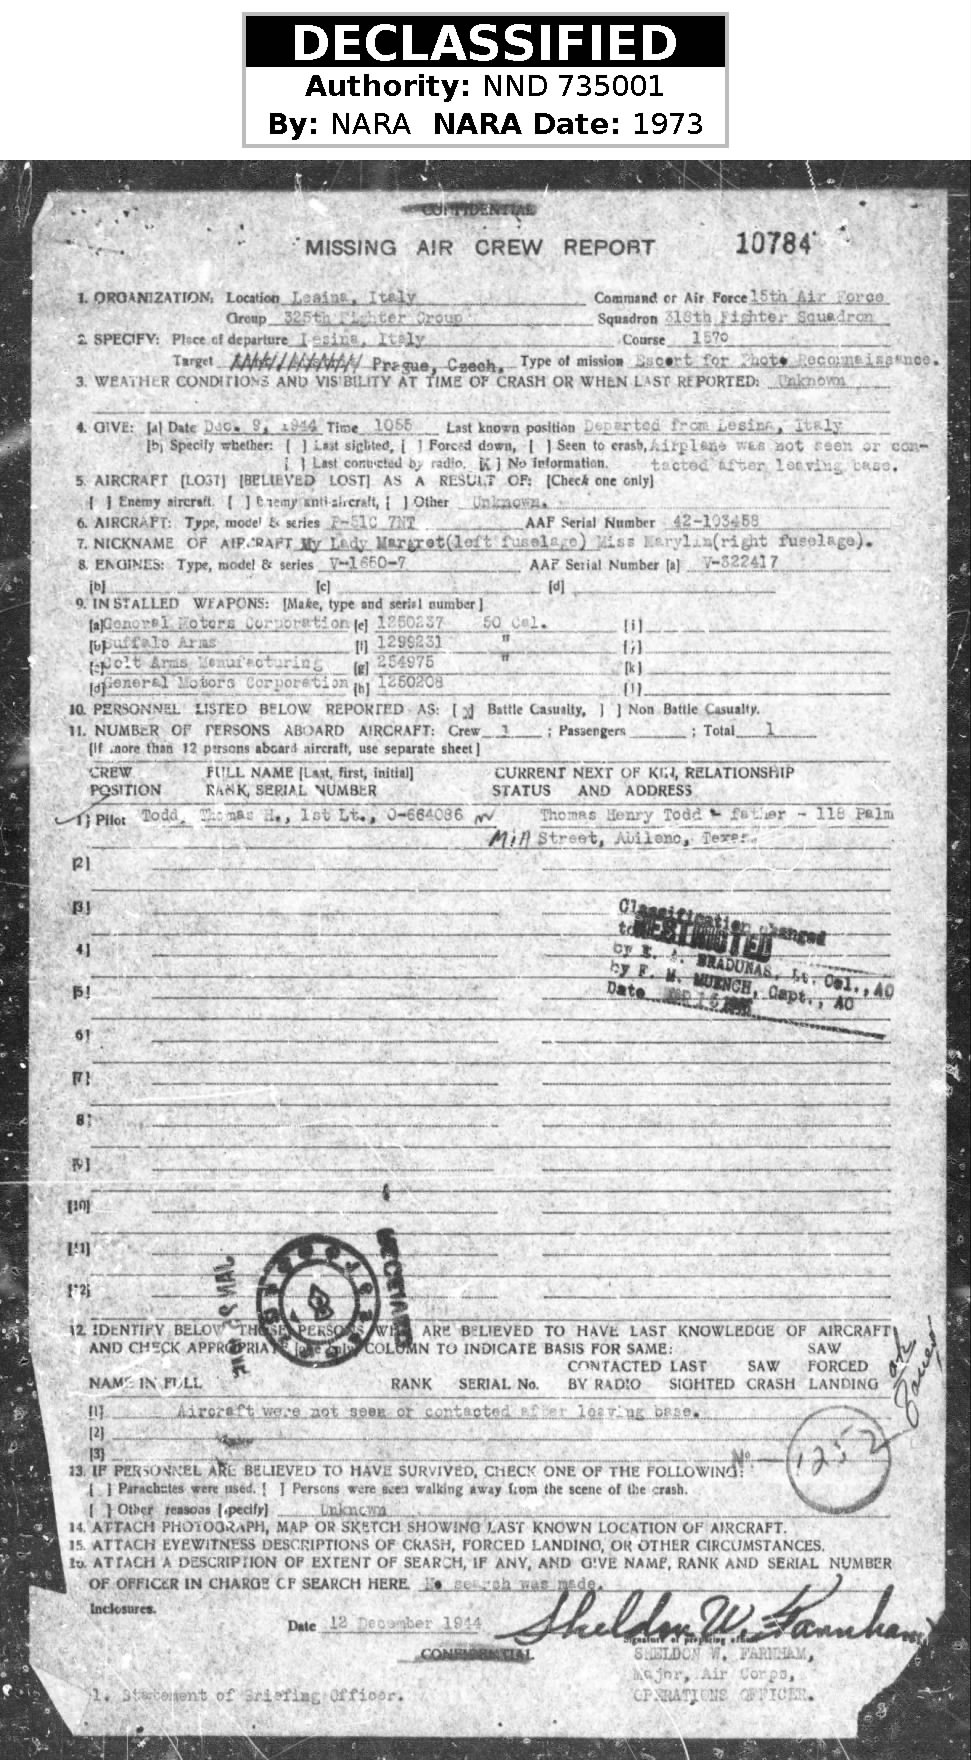 DECLASSIFIED
Authority: NND 735001
By: NARA NARA Date: 1973
CONFIDENTIAL
MISSING AIR CREW REPORT 10784
1. ORGANIZATION: Location Lesina, Italy Command or Air Force 15th Air Force
Group 325th Fighter Group Squadron 318th Fighter Squadron
2. SPECIFY: Place of departure Lesina, Italy Course
Target Prague, Czech. Type of mission Escort for Photo Reconnaissance.
3. WEATHER CONDITIONS AND VISIBILITY AT TIME OF CRASH OR WHEN LAST REPORTED: Unknown
4. GIVE: [a] Date Dec. 9, 1944 Time 1055 Last known position Departed from Lesina, Italy
[b] Specify whether: [ ] Last sighted, [ ] Forced down, [ ] Seen to crash, Airplane was not seen or con-
[ ] Last contacted by radio, [X] No Information. tacted after leaving base.
5. AIRCRAFT [LOST] [BELIEVED LOST] AS A RESULT OF: [Check one only]
[ ] Enemy aircraft. [ ] Enemy anti-aircraft, [ ] Other Unknown.
6. AIRCRAFT: Type, model & series P-51C 7NT AAF Serial Number 42-103458
7. NICKNAME OF AIRCRAFT My Lady Margret(left fuselage) Miss Marylin(right fuselage).
8. ENGINES: Type, model & series V-1650-7 AAF Serial Number [a] V-322417
[b] [c] [d]
9. INSTALLED WEAPONS: [Make, type and serial number]
[a] General Motors Corporation [e] 1250237 50 Cal. [i]
[b] Buffalo Arms [f] 1299231 " [j]
[c] Colt Arms Manufacturing [g] 254975 " [k]
[d] General Motors Corporation [h] 1250208 [l]
10. PERSONNEL LISTED BELOW REPORTED AS: [x] Battle Casualty, [ ] Non Battle Casualty.
11. NUMBER OF PERSONS ABOARD AIRCRAFT: Crew 1 ; Passengers ; Total 1
[If more than 12 persons aboard aircraft, use separate sheet]
CREW FULL NAME [Last, first, initial] CURRENT NEXT OF KIN, RELATIONSHIP
POSITION RANK, SERIAL NUMBER STATUS AND ADDRESS
1] Pilot Todd, Thomas H., 1st Lt., O-664086 Thomas Henry Todd - father - 118 Palm
MIA Street, Abilene, Texas.
[2]
[3]
Classification changed
to RESTRICTED
4]
by E. A. BRADUNAS, Lt. Col., AC
by F. M. MUENCH, Capt., AC
[5]
Date
6]
[7]
8]
[9]
[10]
[11]
[12]
12. IDENTIFY BELOW THOSE PERSONS WHO ARE BELIEVED TO HAVE LAST KNOWLEDGE OF AIRCRAFT
AND CHECK APPROPRIATE [one only] COLUMN TO INDICATE BASIS FOR SAME: SAW
CONTACTED LAST SAW FORCED
NAME IN FULL RANK SERIAL No. BY RADIO SIGHTED CRASH LANDING
[1] Aircraft were not seen or contacted after leaving base.
[2]
[3] No — 1252
13. IF PERSONNEL ARE BELIEVED TO HAVE SURVIVED, CHECK ONE OF THE FOLLOWING:
[ ] Parachutes were used. [ ] Persons were seen walking away from the scene of the crash.
[ ] Other reasons [specify] Unknown
14. ATTACH PHOTOGRAPH, MAP OR SKETCH SHOWING LAST KNOWN LOCATION OF AIRCRAFT.
15. ATTACH EYEWITNESS DESCRIPTIONS OF CRASH, FORCED LANDING, OR OTHER CIRCUMSTANCES.
16. ATTACH A DESCRIPTION OF EXTENT OF SEARCH, IF ANY, AND GIVE NAME, RANK AND SERIAL NUMBER
OF OFFICER IN CHARGE OF SEARCH HERE No search was made.
Inclosures.
Date 12 December 1944 Sheldon W. Farnham
Signature of preparing officer
CONFIDENTIAL SHELDON W. FARNHAM,
Major, Air Corps,
1. Statement of Briefing Officer. OPERATIONS OFFICER.